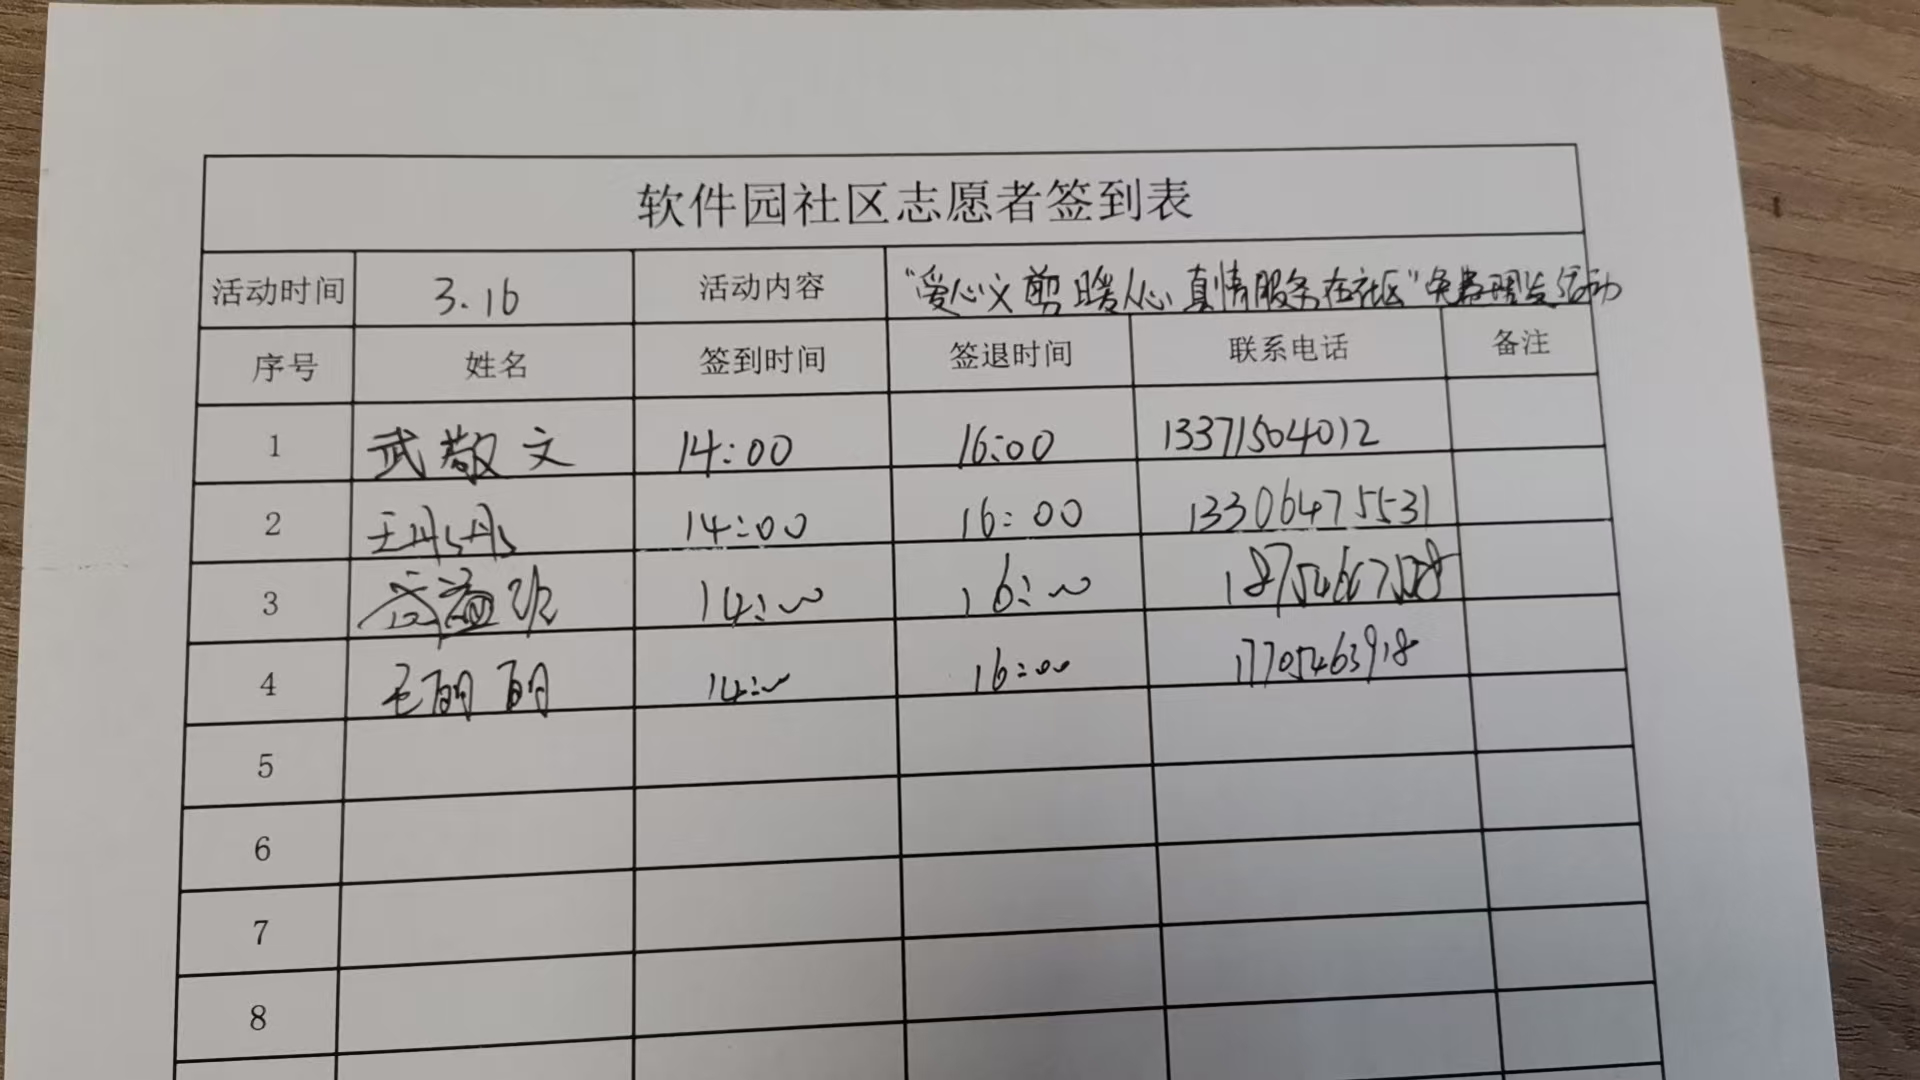 软件园社区志愿者签到表
活动时间 3.16 活动内容 “爱心义剪 暖人心 真情服务在社区”免费理发活动
序号 姓名 签到时间 签退时间 联系电话 备注
1 武敬文 14:00 16:00 13371504012
2 王丹丹 14:00 16:00 13306475531
3 14:00 16:00
4 毛丽丽 14:00 16:00 17705463918
5
6
7
8